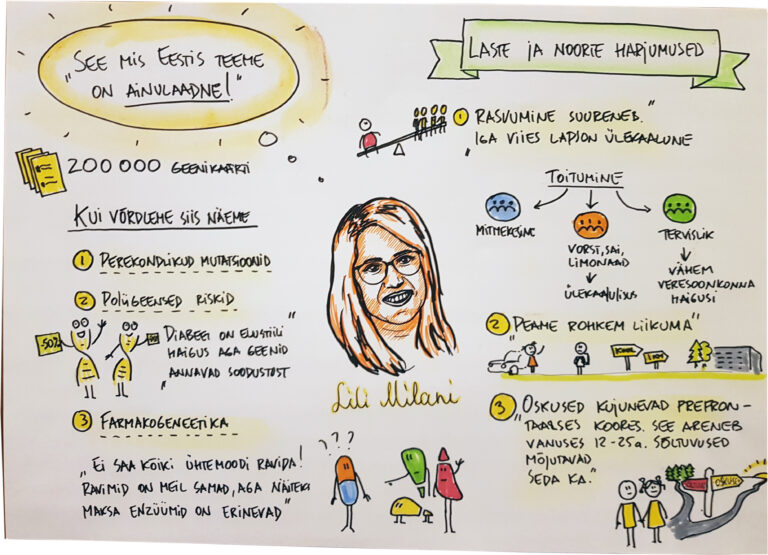 „SEE MIS EESTIS TEEME
ON AINULAADNE!"
200 000 GEENIKAARTI
KUI VÕRDLEME SIIS NÄEME
1 PEREKONDLIKUD MUTATSIOONID
2 POLÜGEENSED RISKID
-50%
DIABEET ON ELUSTIILI"
HAIGUS AGA GEENID
„ANNAVAD SOODUSTUST
3 FARMAKOGENEETIKA
„EI SAA KÕIKI ÜHTEMOODI RAVIDA!
RAVIMID ON MEIL SAMAD, AGA NÄITEKS
MAKSA ENZÜÜMID ON ERINEVAD"
???
Lili Milani
LASTE JA NOORTE HARJUMUSED
1 RASVUMINE SUURENEB."
IGA VIIES LAPS ON ÜLEKAALUNE
TOITUMINE
MITMEKESINE
VORST, SAI,
LIMONAAD
ÜLEKAALULISUS
TERVISLIK
VÄHEM
VERESOONKONNA
HAIGUSI
2 "PEAME ROHKEM LIIKUMA"
KOOL
1 KM
3 „OSKUSED KUJUNEVAD PREFRON-
TAALSES KOORES. SEE ARENEB
VANUSES 12-25a. SÕLTUVUSED
MÕJUTAVAD
SEDA KA."
OSKUSED